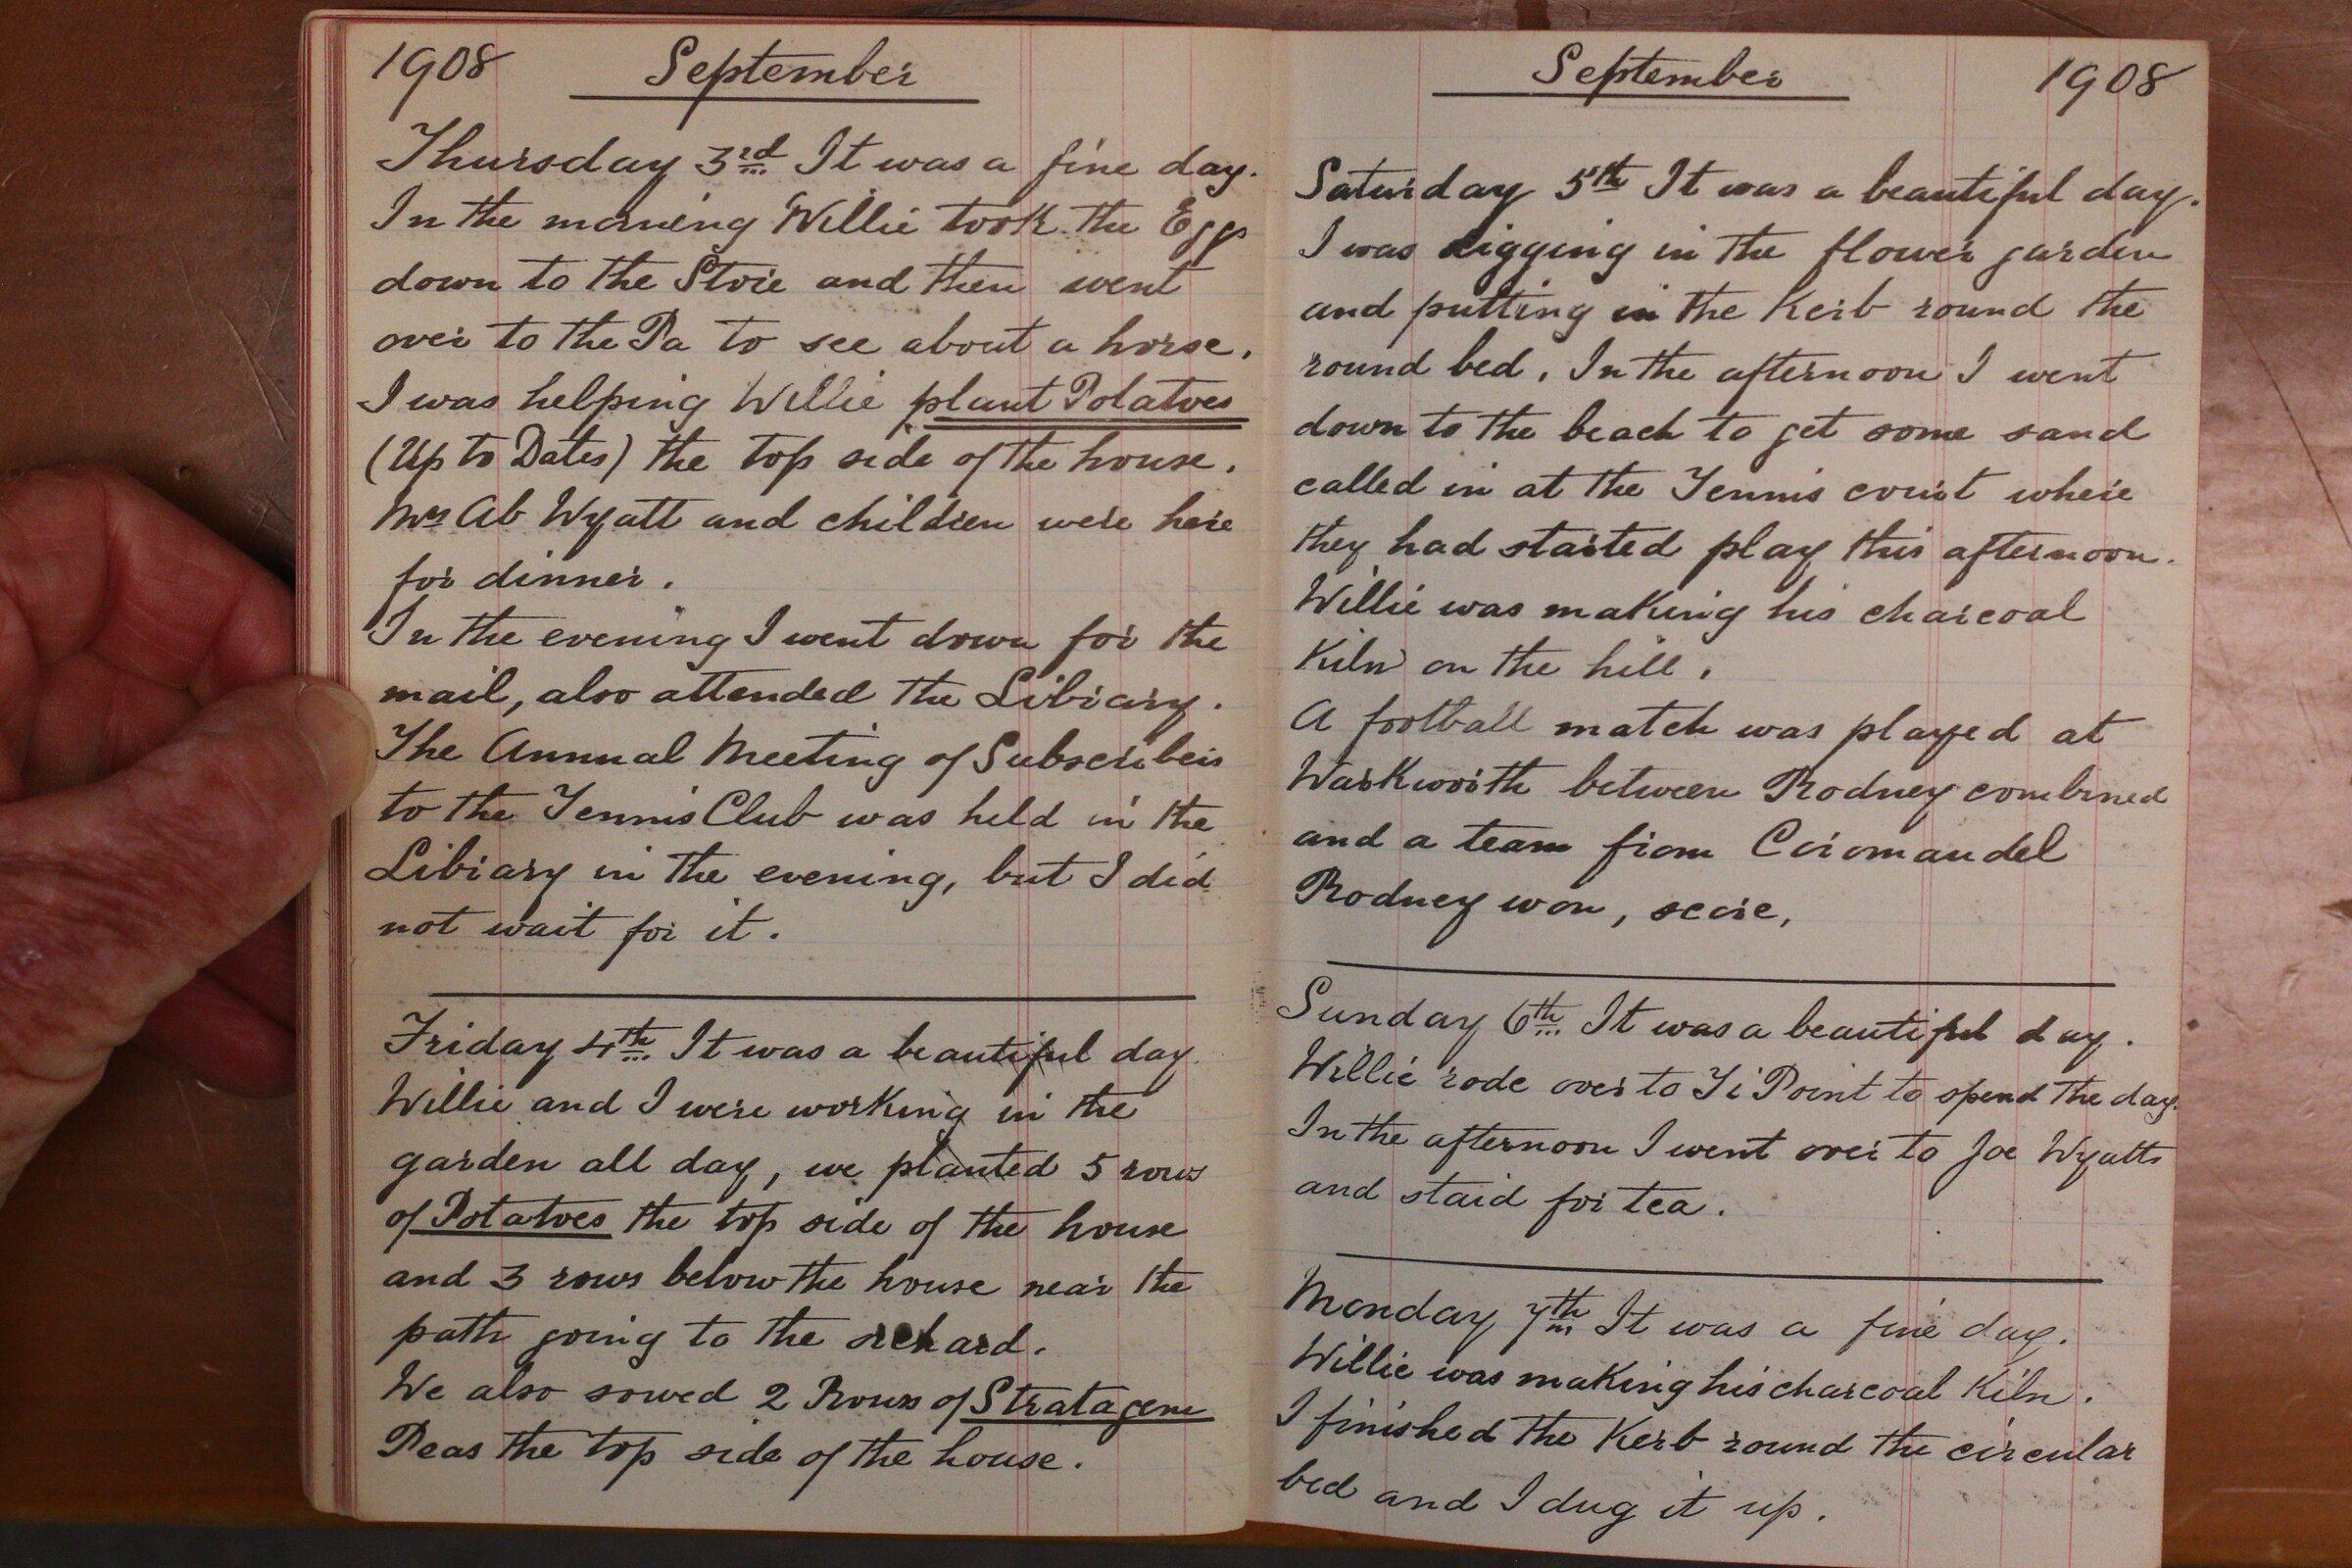 1908 September
Thursday 3rd It was a fine day.
In the morning Willie took the Eggs
down to the Store and then went
over to the Pa to see about a horse.
I was helping Willie plant Potatoes
(Up to Dates) the top side of the house.
Mrs Ab Wyatt and children were here
for dinner.
In the evening I went down for the
mail, also attended the Library.
The Annual Meeting of Subscribers
to the Tennis Club was held in the
Library in the evening, but I did
not wait for it.
Friday 4th It was a beautiful day
Willie and I were working in the
garden all day, we planted 5 rows
of Potatoes the top side of the house
and 3 rows below the house near the
path going to the orchard.
We also sowed 2 Rows of Stratagem
Peas the top side of the house.
September 1908
Saturday 5th It was a beautiful day.
I was digging in the flower garden
and putting in the Kerb round the
round bed. In the afternoon I went
down to the beach to get some sand
called in at the Tennis court where
they had started play this afternoon.
Willie was making his charcoal
Kiln on the hill.
A football match was played at
Warkworth between Rodney combined
and a team from Coromandel
Rodney won, score,
Sunday 6th It was a beautiful day.
Willie rode over to Ti Point to spend the day.
In the afternoon I went over to Joe Wyatts
and staid for tea.
Monday 7th It was a fine day.
Willie was making his charcoal Kiln.
I finished the Kerb round the circular
bed and I dug it up.